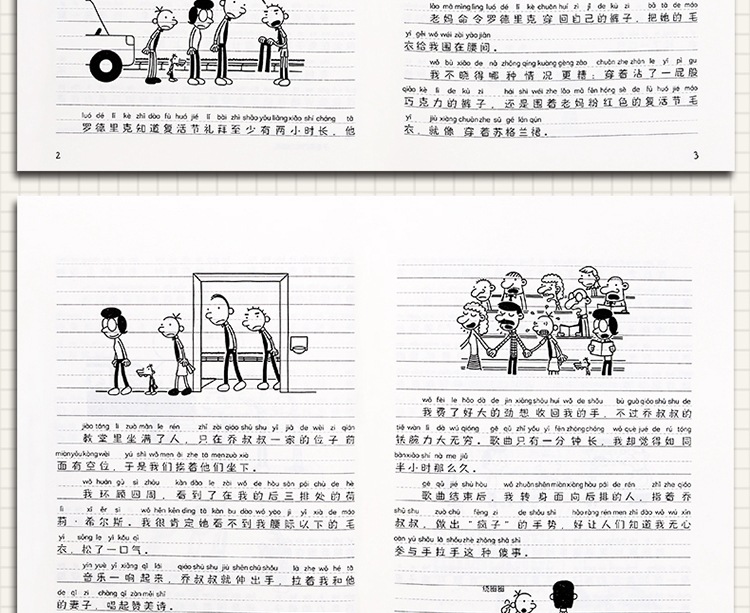 luó dé lǐ kè zhī dào fù huó jié lǐ bài zhì shǎo yǒu liǎng xiǎo shí cháng tā
罗德里克知道复活节礼拜至少有两小时长，他
2
lǎo mā mìng lìng luó dé lǐ kè chuān huí zì jǐ de kù zi bǎ tā de máo
老妈命令罗德里克穿回自己的裤子，把她的毛
yī gěi wǒ wéi zài yāo jiān
衣给我围在腰间。
wǒ bù xiǎo de nǎ zhǒng qíng kuàng gèng zāo chuān zhe zhān le yí pì gu
我不晓得哪种情况更糟：穿着沾了一屁股
qiǎo kè lì de kù zi hái shi wéi zhe lǎo mā fěn hóng sè de fù huó jié máo
巧克力的裤子，还是围着老妈粉红色的复活节毛
yī jiù xiàng chuān zhe sū gé lán qún
衣，就像穿着苏格兰裙。
3
jiào táng lǐ zuò mǎn le rén zhǐ zài qiáo shū shu yì jiā de wèi zi qián
教堂里坐满了人，只在乔叔叔一家的位子前
miàn yǒu kòng wèi yú shì wǒ men āi zhe tā men zuò xià
面有空位，于是我们挨着他们坐下。
wǒ huán gù sì zhōu kàn dào le zài wǒ de hòu sān pái chù de hè
我环顾四周，看到了在我的后三排处的荷
lì xī ěr sī wǒ hěn kěn dìng tā kàn bu dào wǒ yāo jì yǐ xià de máo
莉·希尔斯。我很肯定她看不到我腰际以下的毛
yī sōng le yì kǒu qì
衣，松了一口气。
yīn yuè yì xiǎng qǐ lái qiáo shū shu jiù shēn chū shǒu lā zhe wǒ hé tā
音乐一响起来，乔叔叔就伸出手，拉着我和他
de qī zi chàng qǐ zàn měi shī
的妻子，唱起赞美诗。
wǒ fèi le hǎo dà de jìn xiǎng shōu huí wǒ de shǒu bú guò qiáo shū shu de
我费了好大的劲想收回我的手，不过乔叔叔的
tiě wàn lì dà wú qióng gē qǔ zhǐ yǒu yì fēn zhōng cháng wǒ què jué de rú tóng
铁腕力大无穷。歌曲只有一分钟长，我却觉得如同
bàn xiǎo shí nà me jiǔ
半小时那么久。
gē qǔ jié shù hòu wǒ zhuǎn shēn miàn xiàng hòu pái de rén zhǐ zhe qiáo
歌曲结束后，我转身面向后排的人，指着乔
shū shu zuò chū fēng zi de shǒu shì hǎo ràng rén men zhī dào wǒ wú xīn
叔叔，做出“疯子”的手势，好让人们知道我无心
cān yù shǒu lā shǒu zhè zhǒng shǎ shì
参与手拉手这种傻事。
绕圈圈